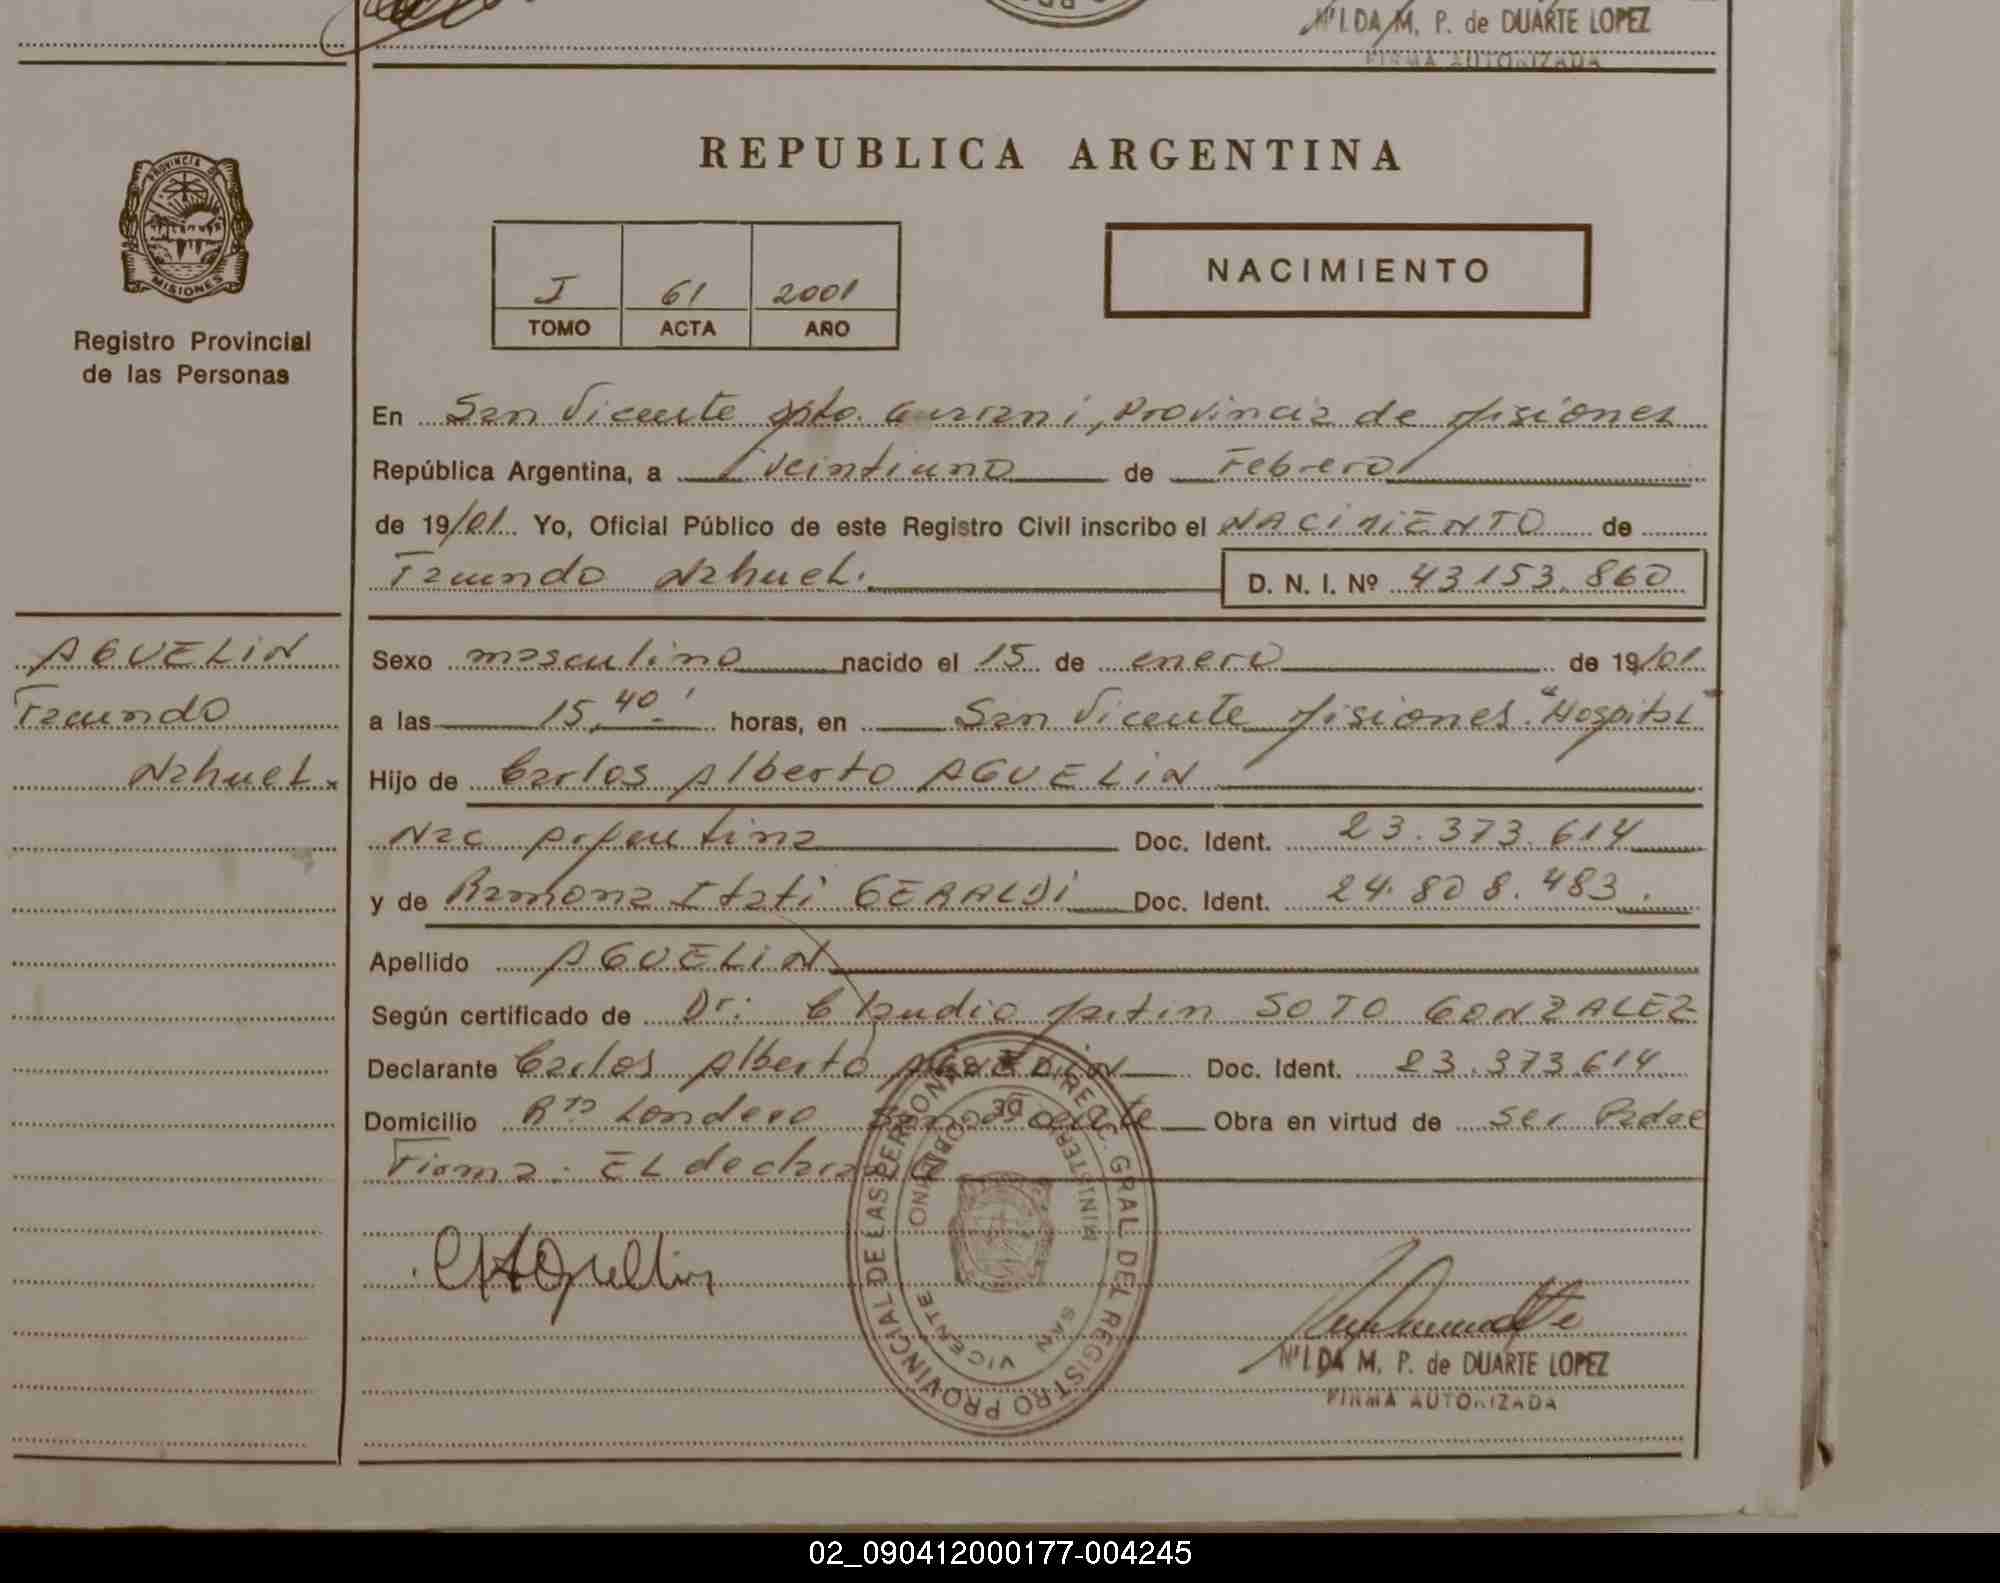 NILDA M. P. de DUARTE LOPEZ
FIRMA AUTORIZADA
PROVINCIA DE
MISIONES
Registro Provincial
de las Personas
REPUBLICA ARGENTINA
I 61 2001
TOMO ACTA AÑO
NACIMIENTO
En San Vicente Dpto. Guarani, Provincia de Misiones
República Argentina, a veintiuno de Febrero
de 19/01. Yo, Oficial Público de este Registro Civil inscribo el NACIMIENTO de
Facundo Nahuel. D. N. I. Nº 43153.860
AGUELIN
Facundo
Nahuel.
Sexo masculino nacido el 15 de enero de 19/01
a las 15,40' horas, en San Vicente Misiones "Hospital"
Hijo de Carlos Alberto AGUELIN
Nac Argentina Doc. Ident. 23.373.614
y de Ramona Itati GERALDI Doc. Ident. 24.808.483.
Apellido AGUELIN
Según certificado de Dr: Claudio SOTO GONZALEZ
Declarante Carlos Alberto AGUELIN Doc. Ident. 23.373.614
Domicilio Londero San Vicente Obra en virtud de ser Padre
Firma: EL declarante
DIREC. GRAL DEL REGISTRO PROVINCIAL DE LAS PERSONAS
MINISTERIO DE GOBIERNO
SAN VICENTE
NILDA M. P. de DUARTE LOPEZ
FIRMA AUTORIZADA
02_090412000177-004245